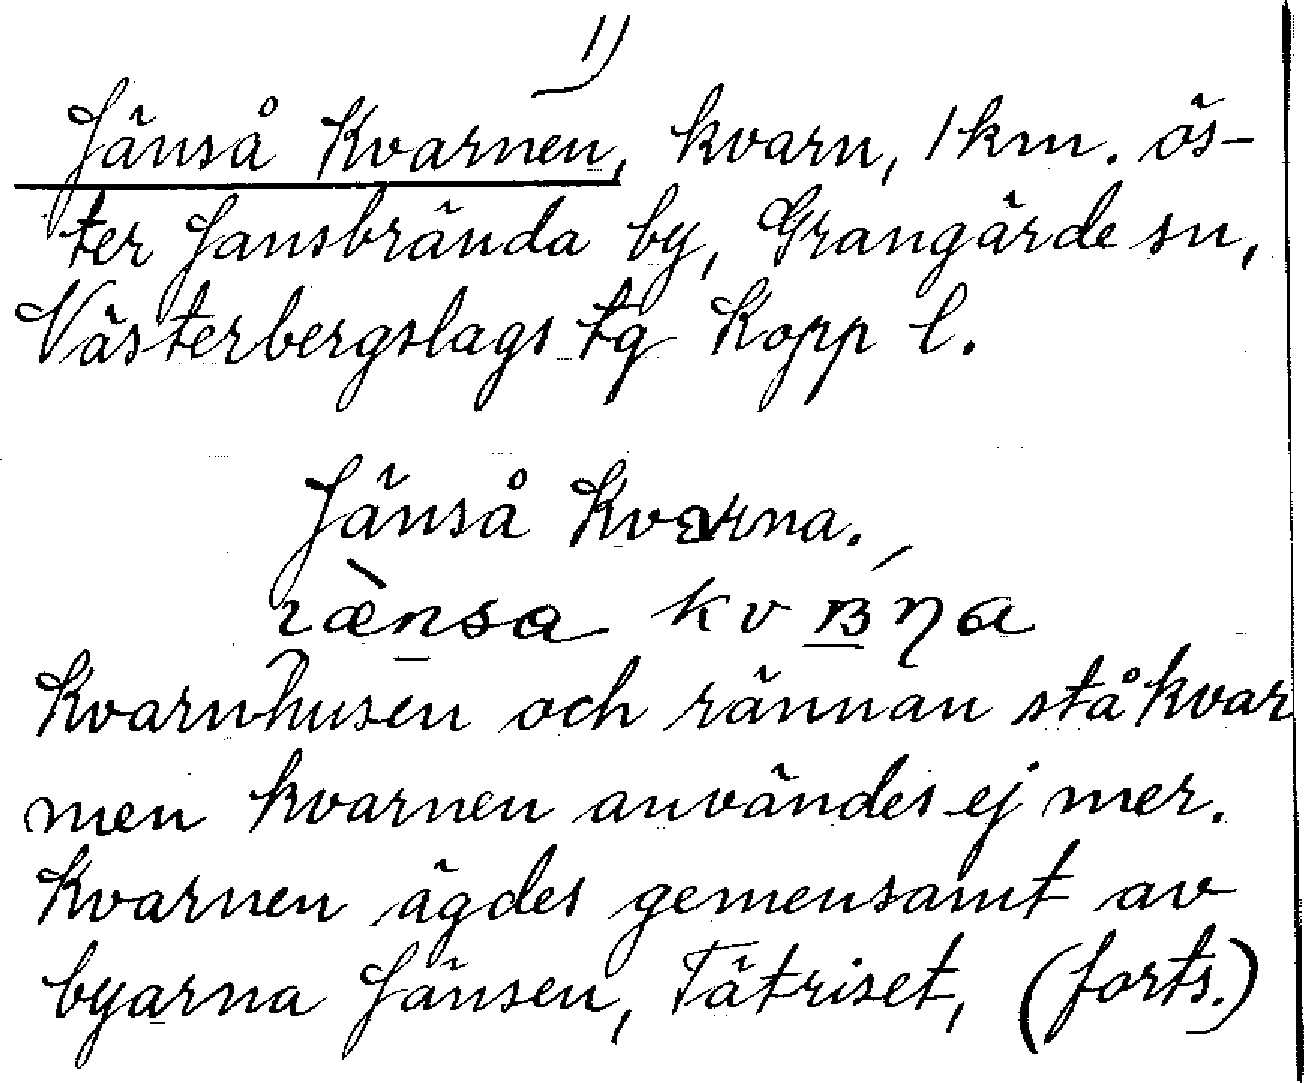 1)
Jänså Kvarnen, kvarn, 1 km. ös-
ter Jansbrända by, Grangärde sn,
Västerbergslags tg Kopp l.
Jänså Kvarna.
kvarnhusen och rännan stå kvar
men kvarnen användes ej mer.
Kvarnen ägdes gemensamt av
byarna Jänsen, Tätriset, (forts.)